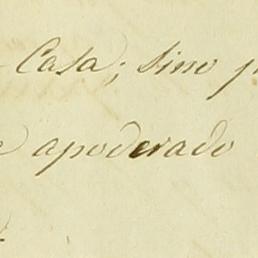 Casa; sino
apoderado